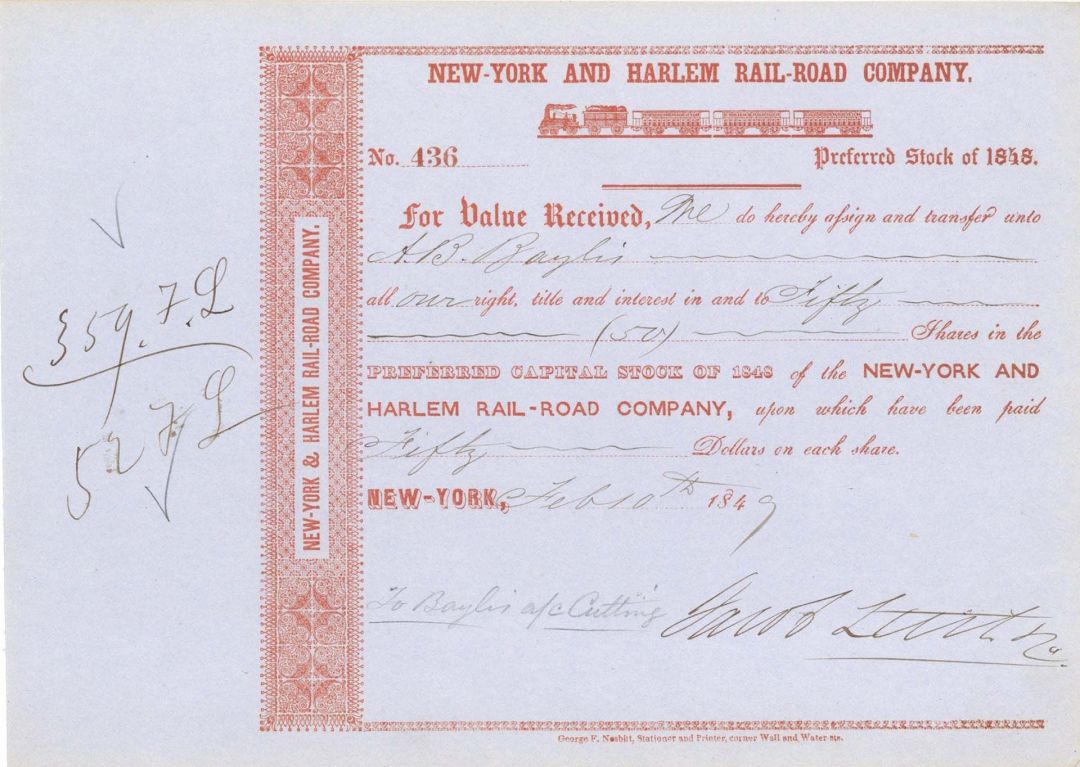 NEW-YORK AND HARLEM RAIL-ROAD COMPANY.
No. 436
Preferred Stock of 1848.
For Value Received, We do hereby assign and transfer unto
A.B. Baylis
all our right, title and interest in and to Fifty
(50) Shares in the
PREFERRED CAPITAL STOCK OF 1848 of the NEW-YORK AND
HARLEM RAIL-ROAD COMPANY, upon which have been paid
Fifty Dollars on each share.
NEW-YORK, Feb 10th 1849
To Baylis a/c Cutting
Jacob
George F. Nesbitt, Stationer and Printer, corner Wall and Water sts.
NEW-YORK & HARLEM RAIL-ROAD COMPANY.
359. F.L
52 F L